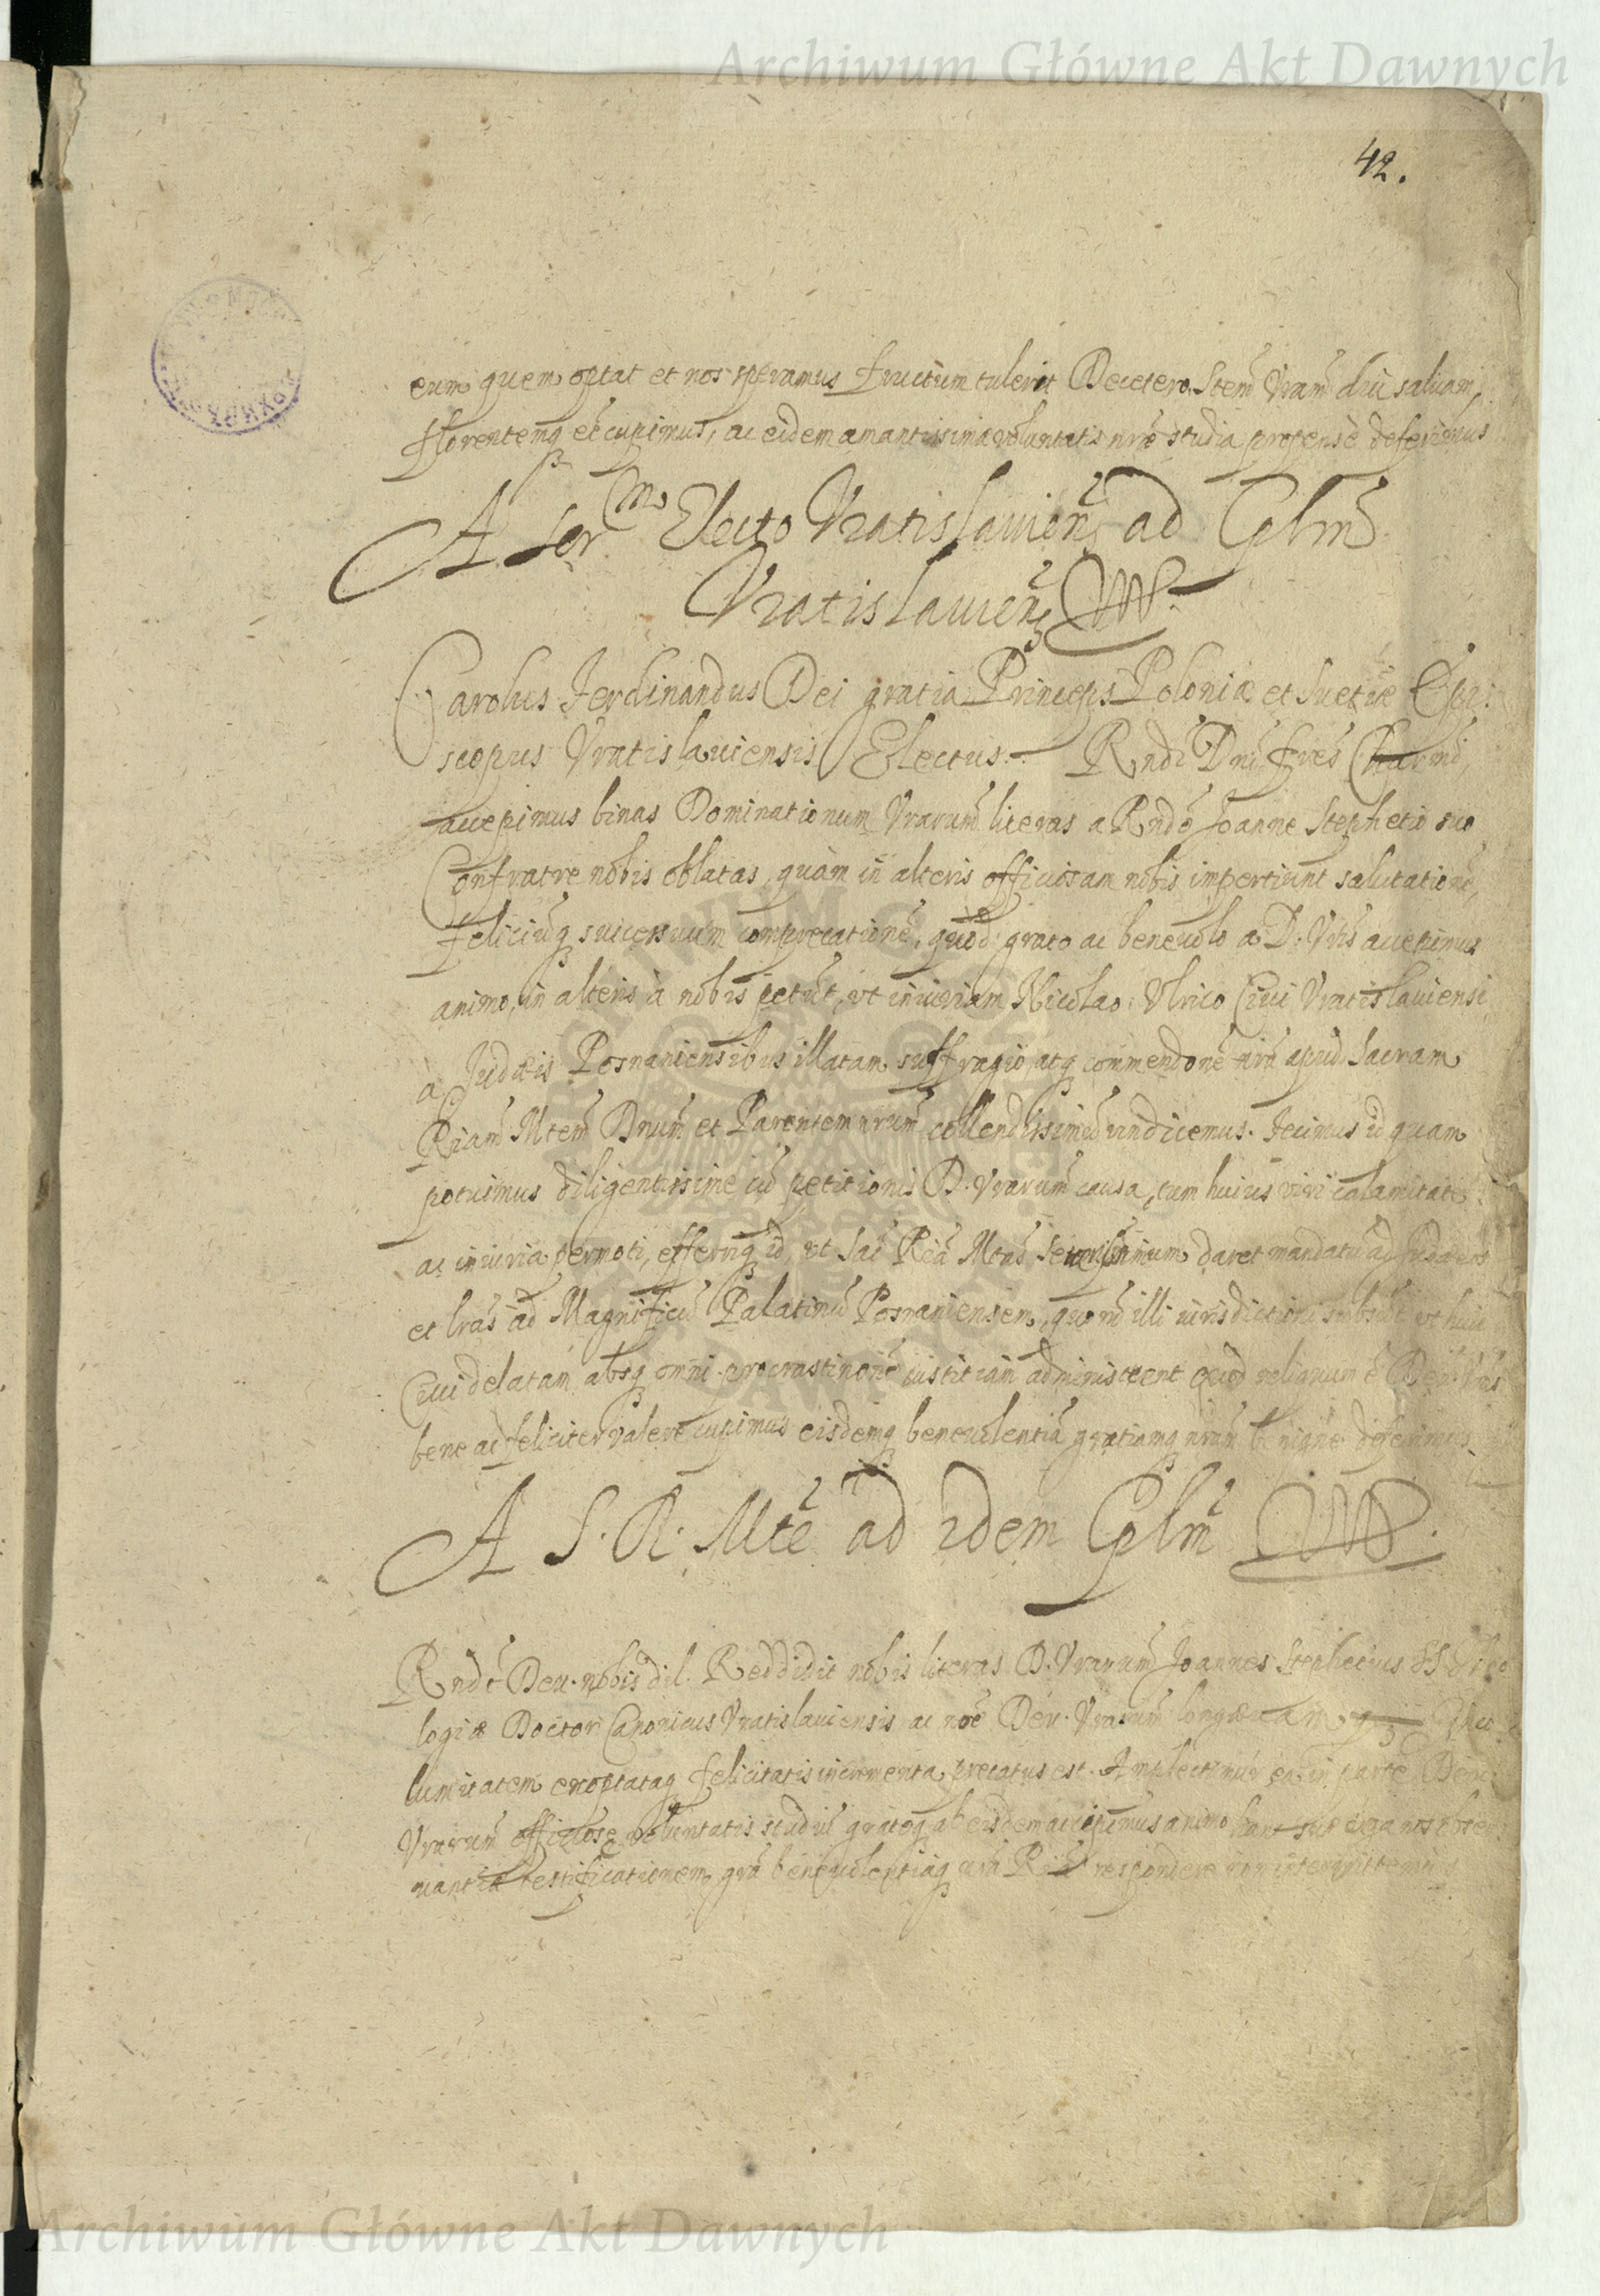 Archiwum Główne Akt Dawnych
42.
eum quem optat et nos speramus fructum tulerit Decetero Stem Vram diu saluam,
florentemq; eē cupimus, ac eidem amantissima voluntatis nrae studia propensè deferimus
A Ser.mo Electo Vratislauien̄ ad Cplm̄
Vratislauien̄
Carolus Ferdinandus Dei gratia Princeps Poloniæ et Suetiæ Epi:
scopus Vratislauiensis Electus. Rndi Dni fres Charmi,
accepimus binas Dominationum Vrarum literas a Rndo Joanne Stephetio suo
Confratre nobis oblatas, quàm in alteris officiosam nobis impertiunt salutationē,
feliciuq; successuum comprecationē, quod grato ac beneuolo a D: Vris accepimus
animo, in alteris à nobis petūt, vt iniuriam Nicolao Vlrico Ciui Vratislauiensi
a Judæis Posnaniensibus illatam suffragio atq; commendonē nrā apud Sacram
Riam Mtem Dnum et Parentem nrum collendissimū vindicemus. Fecimus id quam
potuimus diligentissime cū petitionis D. Vrarum causa, tum huius viri calamitate
ac iniuria permoti, effecitq; id, vt Sac Ria Mtas seuerissimum daret mandatū ad Judæos
et lras ad Magnificū Palatinū Posnaniensem, quorū illi iurisdictioni subsūt vt huic
Ciui delatam absq; omni procrastinonē iustitiam administrent Quod reliquum ē Den: Vras
bene ac feliciter valere cupimus eisdemq; beneuolentiā gratiamq; nram benigne deferimus
A S. R. Mte ad idem Cplm̄
Rndi Deu. nobis dil. Reddidit nobis literas D. Vrarum Joannes Stephetius SS Theo
logiæ Doctor Canonicus Vratislauiensis ac noē Deu. Vrarum longæuam incho
lumitatem exoptataq; felicitatis incrementa precatus est. Amplectimur ea in parte Deu:
Vrarum officiosæ voluntatis studiū gratoq; ab eisdem accipimus animo hanc suæ erga nos obser
uantiæ testificationem, grā beneuolentiaq; nrā Ria respondere non intermittemus
Archiwum Główne Akt Dawnych